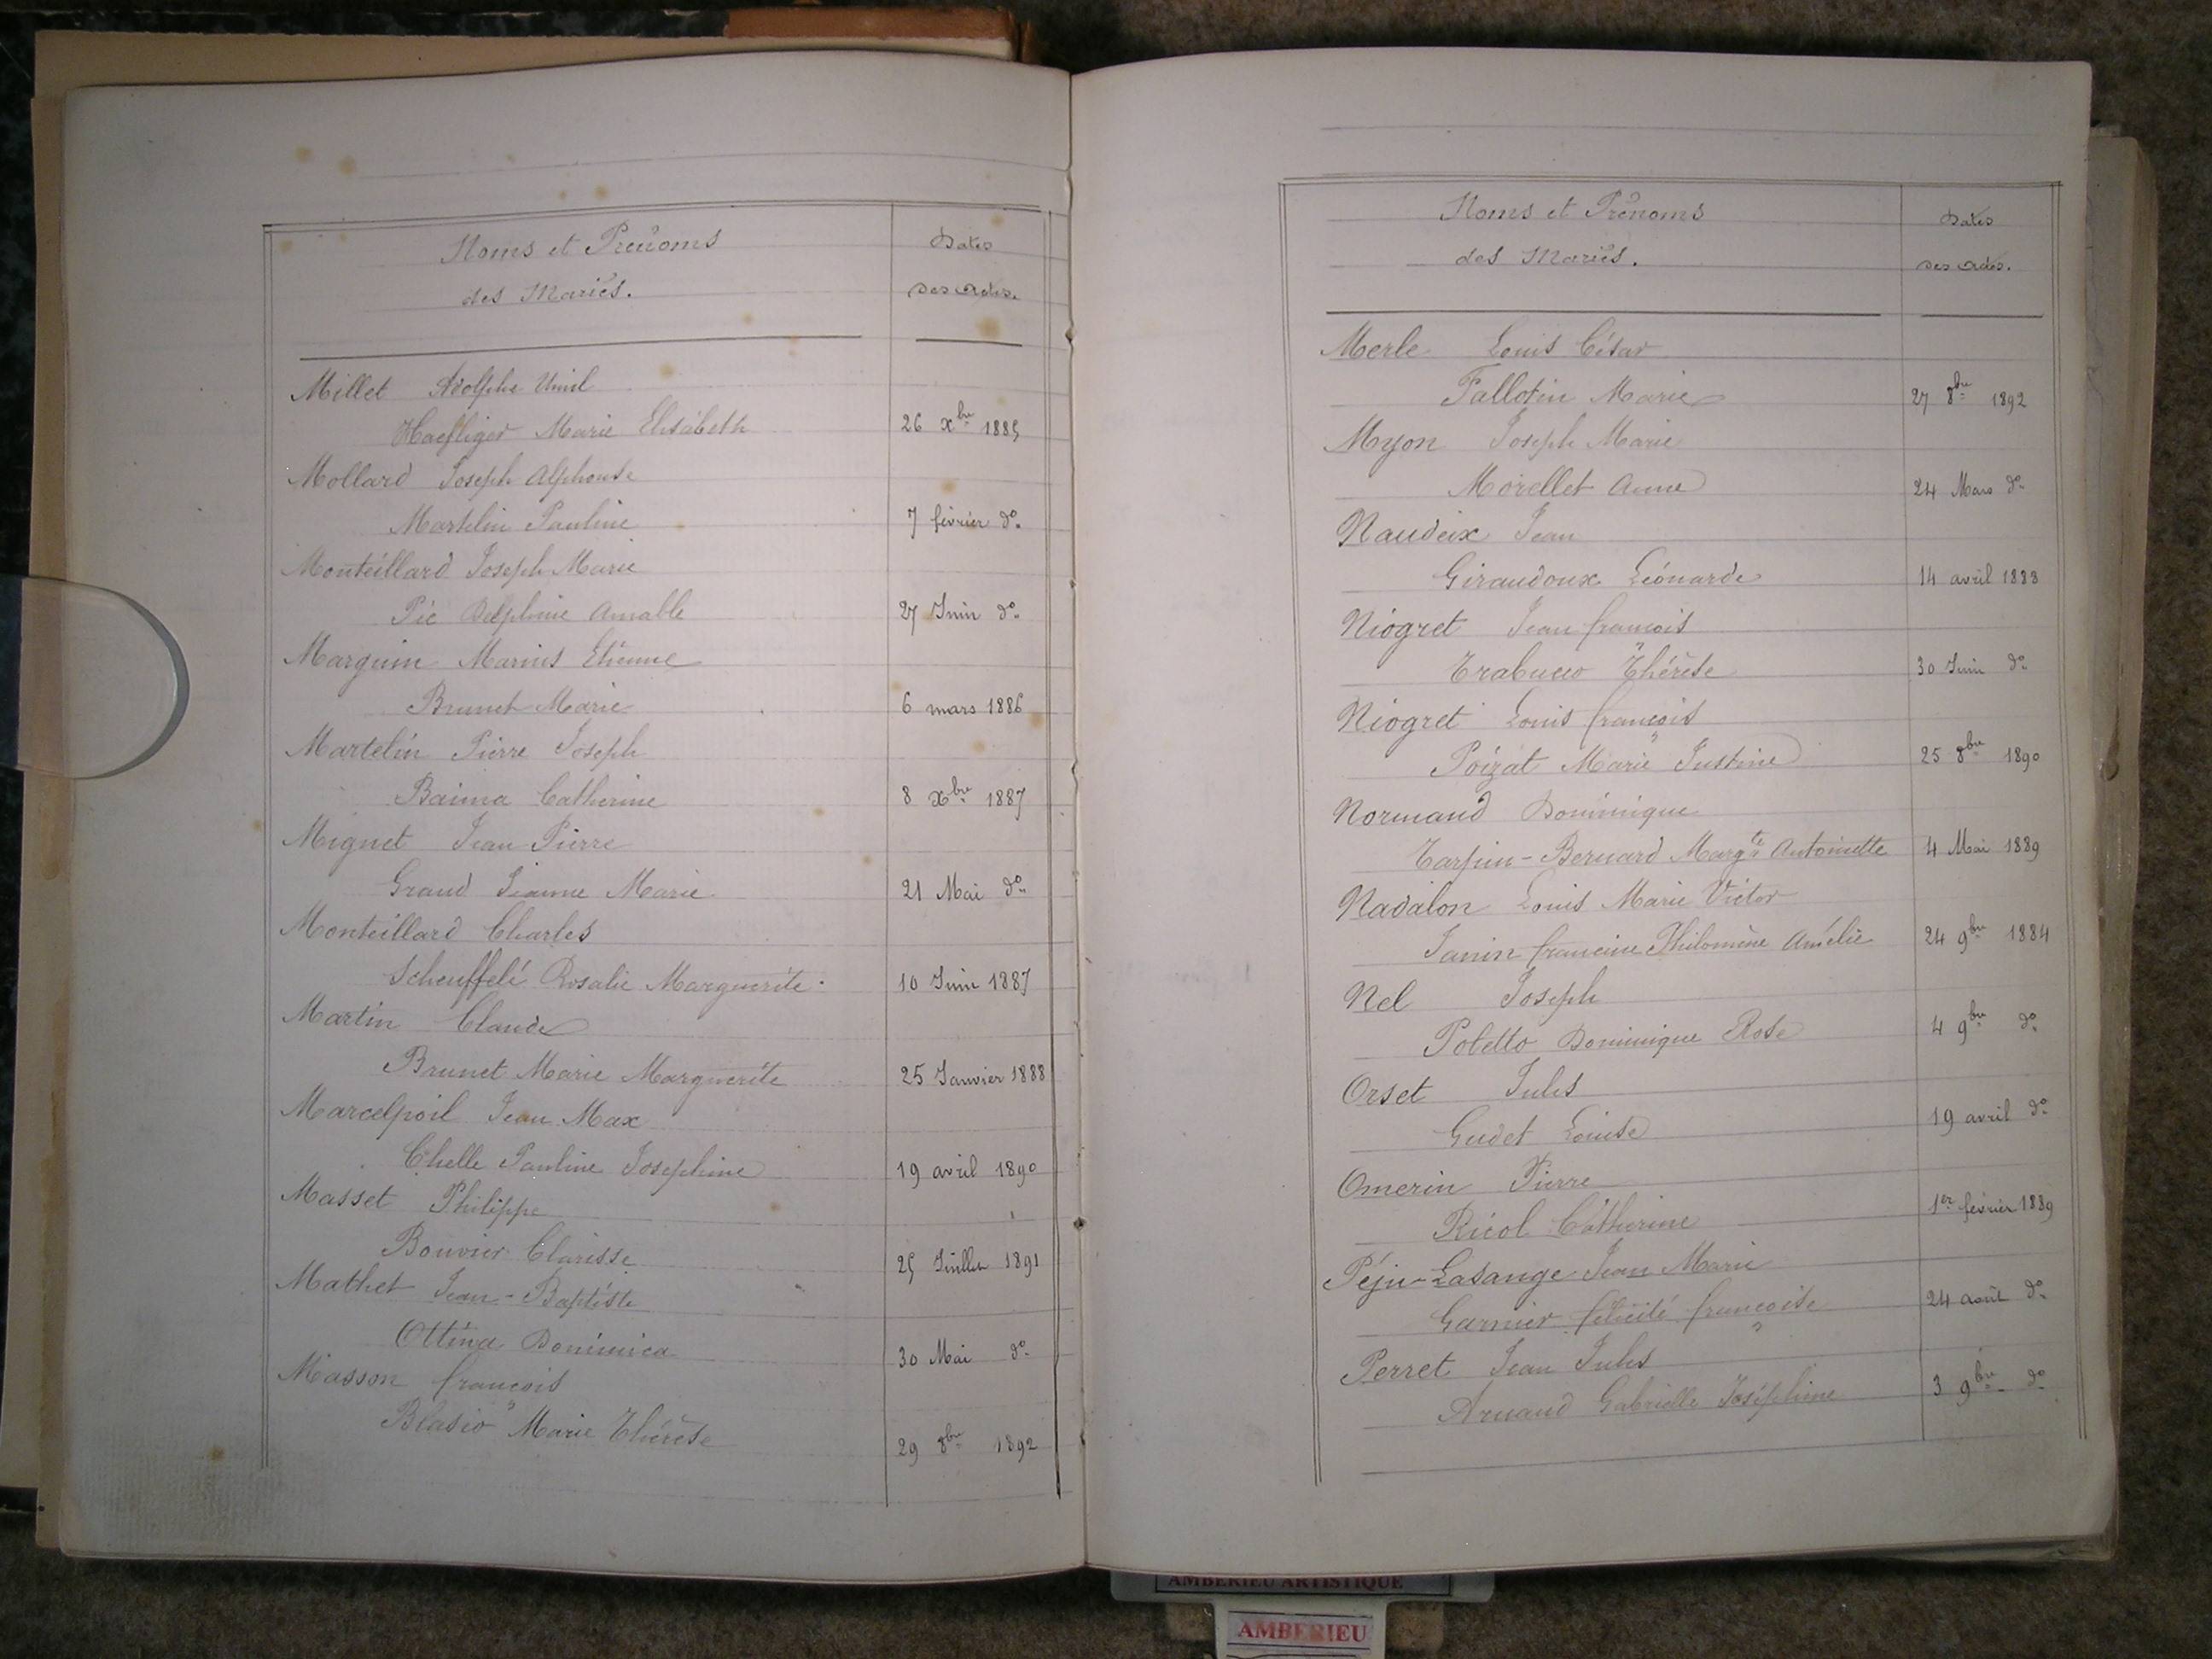 Noms et Prénoms
des Mariés.
Dates
des actes.
Millet Adolphe
Haefliger Marie Elisabeth 26 Xbre 1885
Mollard Joseph Alphonse
Martelin Pauline 7 février do
Monteillard Joseph Marie
Pic Delphine Amable 27 Juin do
Marguin Marius Etienne
Brunet Marie 6 mars 1886
Martelin Pierre Joseph
Baima Catherine 8 Xbre 1887
Mignet Jean Pierre
Graud Jeanne Marie 21 Mai do
Monteillard Charles
Scheuffelé Rosalie Marguerite 10 Juin 1887
Martin Claude
Brunet Marie Marguerite 25 Janvier 1888
Marcelpoil Jean Max
Chelle Pauline Josephine 19 avril 1890
Masset Philippe
Bouvier Clarisse 25 Juillet 1891
Mathet Jean-Baptiste
Ottina Dominica 30 Mai do
Masson françois
Blasio Marie Thérèse 29 8bre 1892
Noms et Prénoms
des Mariés.
Dates
des actes.
Merle Louis César
Fallotin Marie 27 8bre 1892
Myon Joseph Marie
Morellet Anne 24 Mars do
Naudeix Jean
Giraudoux Léonarde 14 avril 1888
Niogret Jean françois
Trabucco Thérèse 30 Juin do
Niogret Louis françois
Poizat Marie Justine 25 8bre 1890
Normand Dominique
Tarpin-Bernard Margte Antoinette 4 Mai 1889
Nadalon Louis Marie Victor
Janin francine Philomène Amélie 24 9bre 1884
Nel Joseph
Poletto Dominique Rose 4 9bre do
Orset Jules
Gudet Louise 19 avril do
Omerin Pierre
Ricol Catherine 1er février 1889
Péju-Lasange Jean Marie
Garnier félicité françoise 24 août do
Perret Jean Jules
Arnaud Gabrielle Joséphine 3 9bre do
AMBERIEU ARTISTIQUE
AMBERIEU